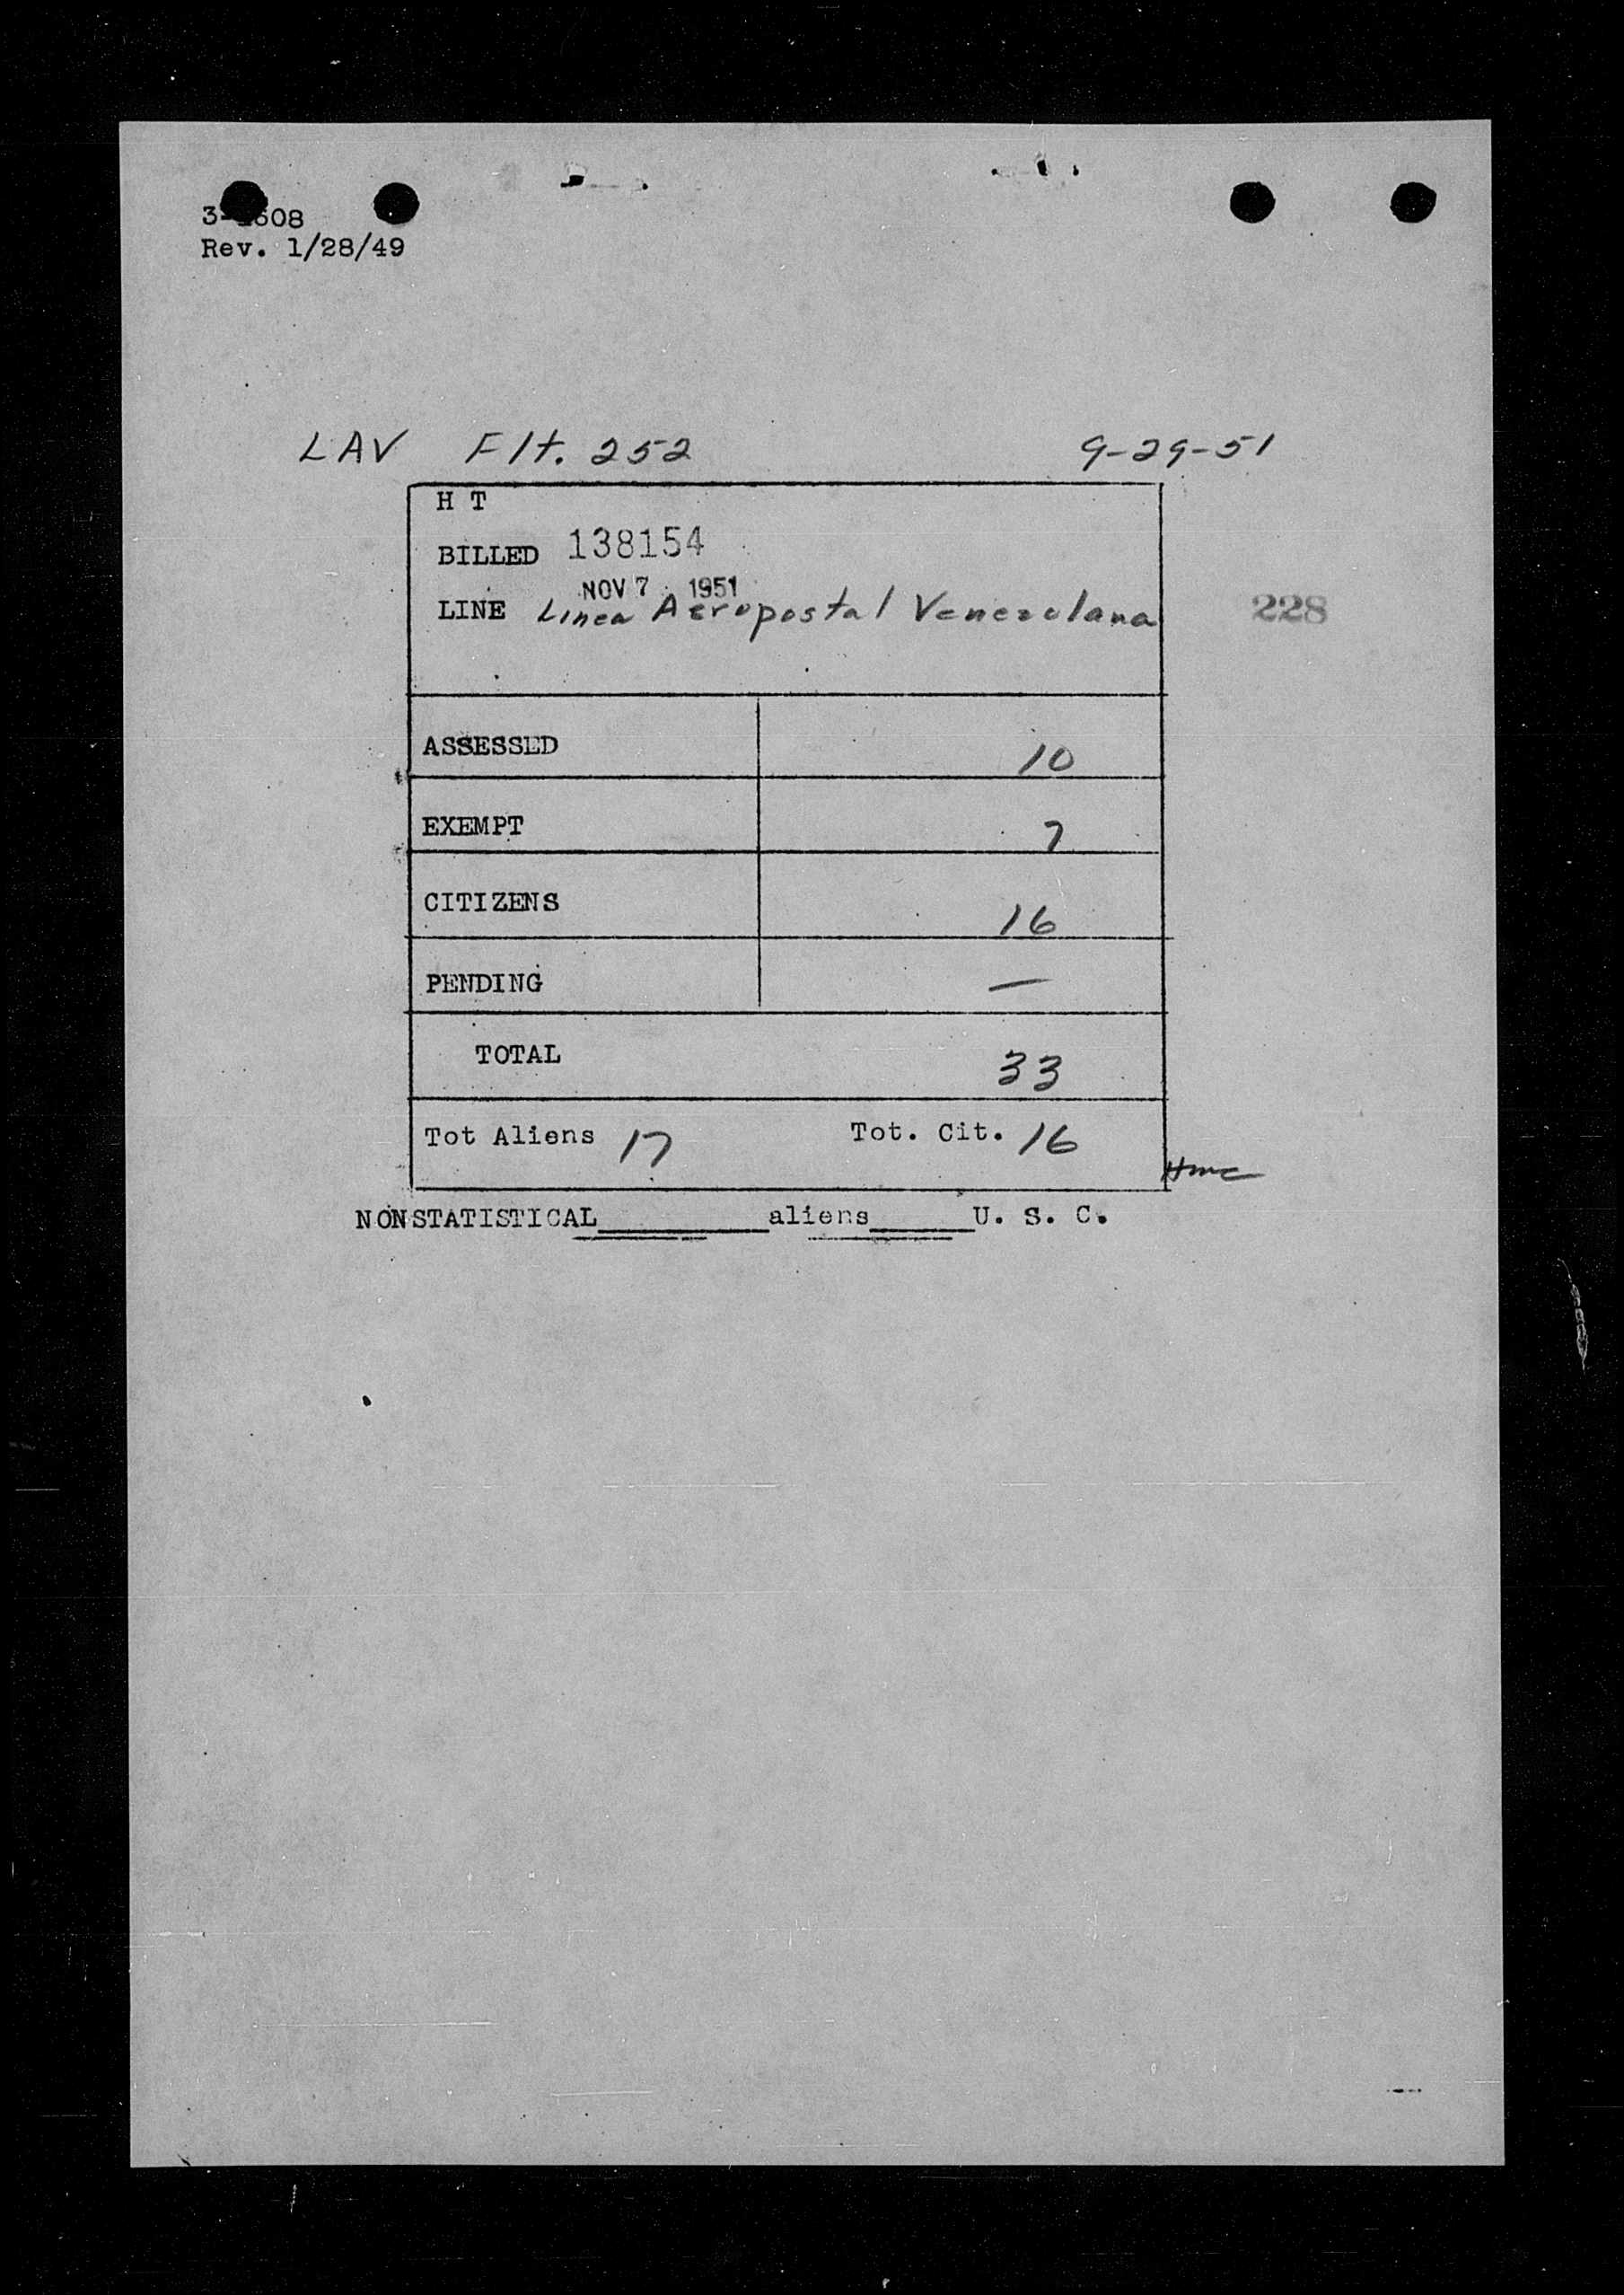 Rev. 1/28/49
LAV Flt. 252 9-29-51
H T
BILLED 138154
NOV 7 1951
LINE Linea Aeropostal Venezolana
228
ASSESSED 10
EXEMPT 7
CITIZENS 16
PENDING —
TOTAL 33
Tot Aliens 17 Tot. Cit. 16
NONSTATISTICAL________aliens_____U. S. C.